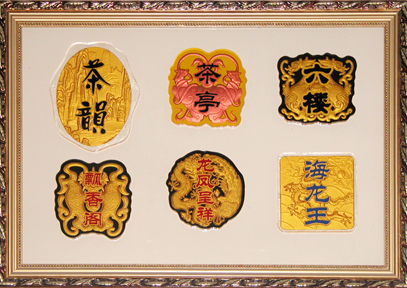 茶韻
茶亭
六樓
飄香阁
龙凤呈祥
海龙王